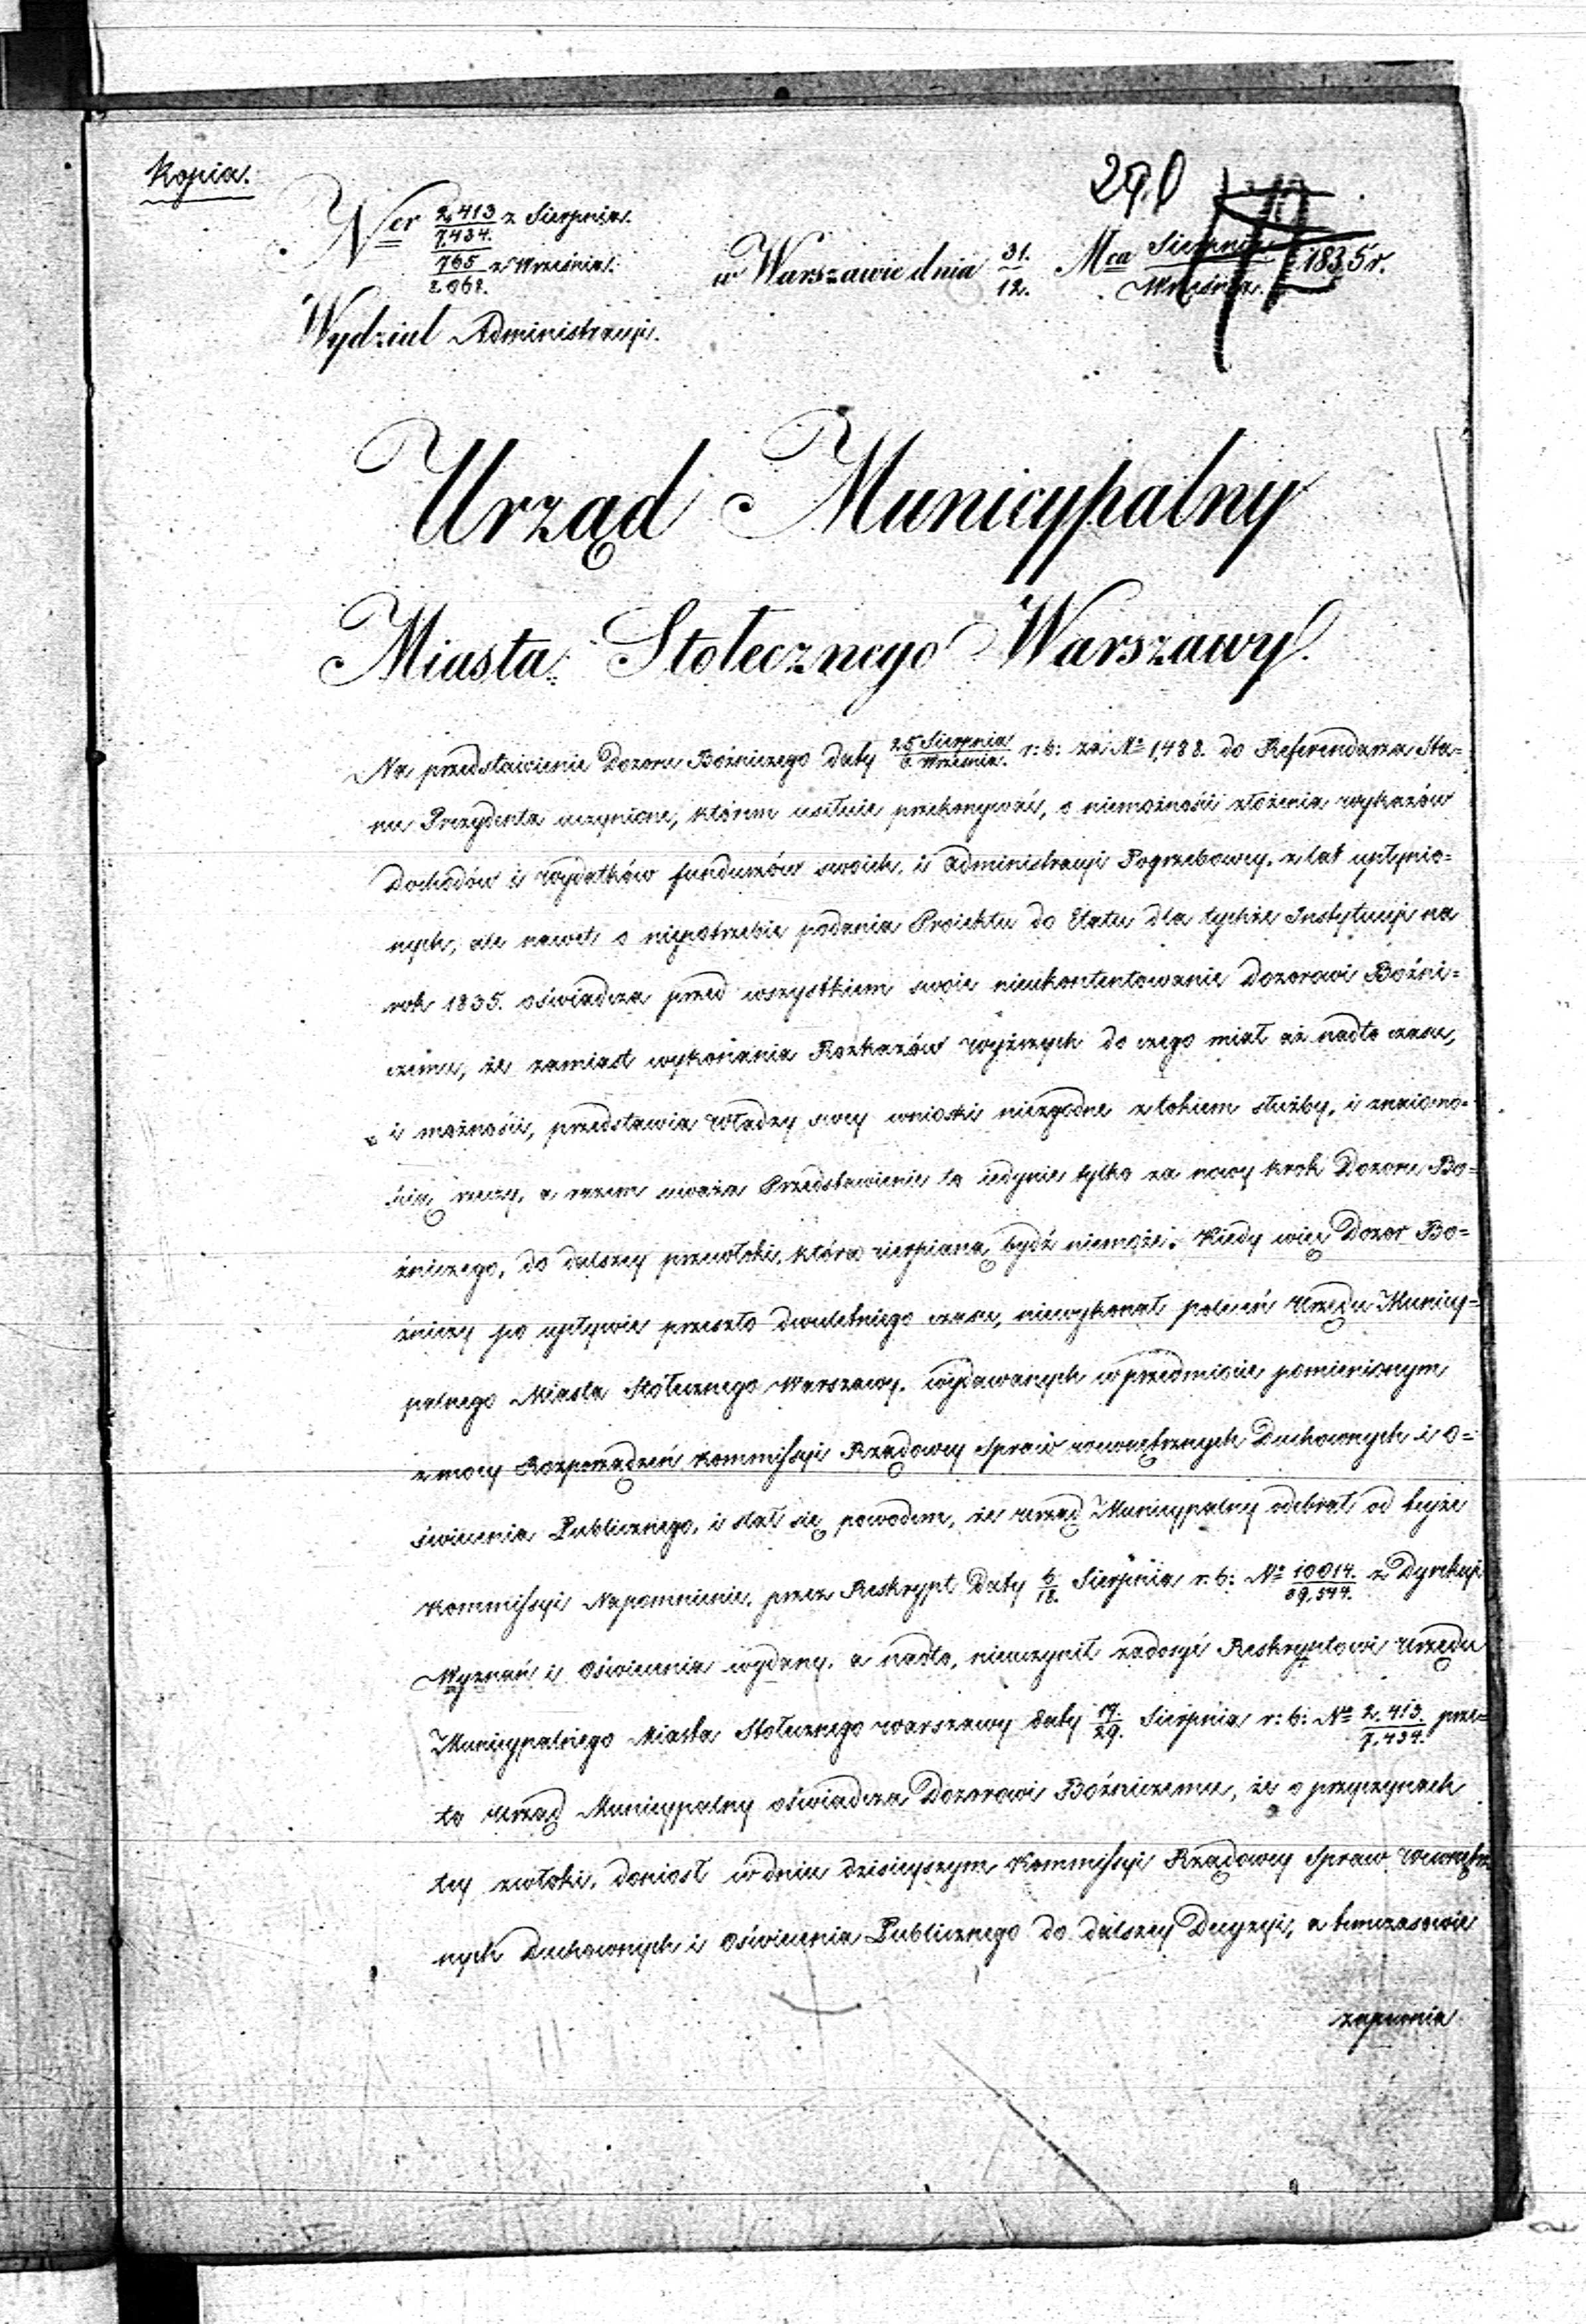 Kopia.
290
Ner 2,413/7,434. z Sierpnia.
765/2062. z Września.
w Warszawie dnia 31./12. Mca Sierpnia/Września. 1835 r.
Wydział Administracyi.
Urząd Municypalny
Miasta Stołecznego Warszawy.
Na przedstawienie Dozoru Bożniczego daty 25 Sierpnia/6 Września. r: b: za No 1,488. do Referendarza Sta=
nu Prezydenta uczynione, którem usiłuie przekonywać, o niemożności złożenia wykazów
Dochodów i wydatków funduszów swoich, i administracyi Pogrzebowey, z lat upłynio=
nych, ale nawet o niepotrzebie podania Proiektu do Etatu dla tychże Instytucyi na
rok 1835. oświadcza przed wszystkiem swoie nieukontentowanie Dozorowi Bożni=
czemu, że zamiast wykonania Rozkazów wyższych do czego miał aż nadto czasu,
i możności, przedstawia Władzy swey wnioski niezgodne z tokiem służby, i znaiomo=
ścią rzeczy, a razem uważa Przedstawienie to iedynie tylko za nowy krok Dozoru Bo=
żniczego, do dalszey przewłoki, która cierpianą bydź niemoże. Kiedy więc Dozór Bo=
żniczy po upływie przeszło dwuletniego czasu, niewykonał poleceń Urzędu Municy=
palnego Miasta Stołecznego Warszawy, wydawanych w przedmiocie pomienionym
z mocy Rozporządzeń Kommissyi Rządowey Spraw wewnętrznych Duchownych i O=
świecenia Publicznego, i stał się powodem, że Urząd Municypalny odebrał od teyże
Kommissyi Napomnienie, przez Reskrypt Daty 6/18. Sierpnia r. b: No 10014./39,544. z Dyrekcyi
Wyznań i Oświecenia wydany, a nadto, nieuczynił zadosyć Reskryptowi Urzędu
Municypalnego Miasta Stołecznego Warszawy daty 17/29. Sierpnia r: b: No 2,413./7,434. prze=
to Urząd Municypalny oświadcza Dozorowi Bożniczemu, że o przyczynach
tey zwłoki, doniosł w dniu dzisieyszym Kommissyi Rządowey Spraw Wewnętrz
nych Duchownych i Oświecenia Publicznego do dalszey Decyzyi, a tymczasowie
zapewnia